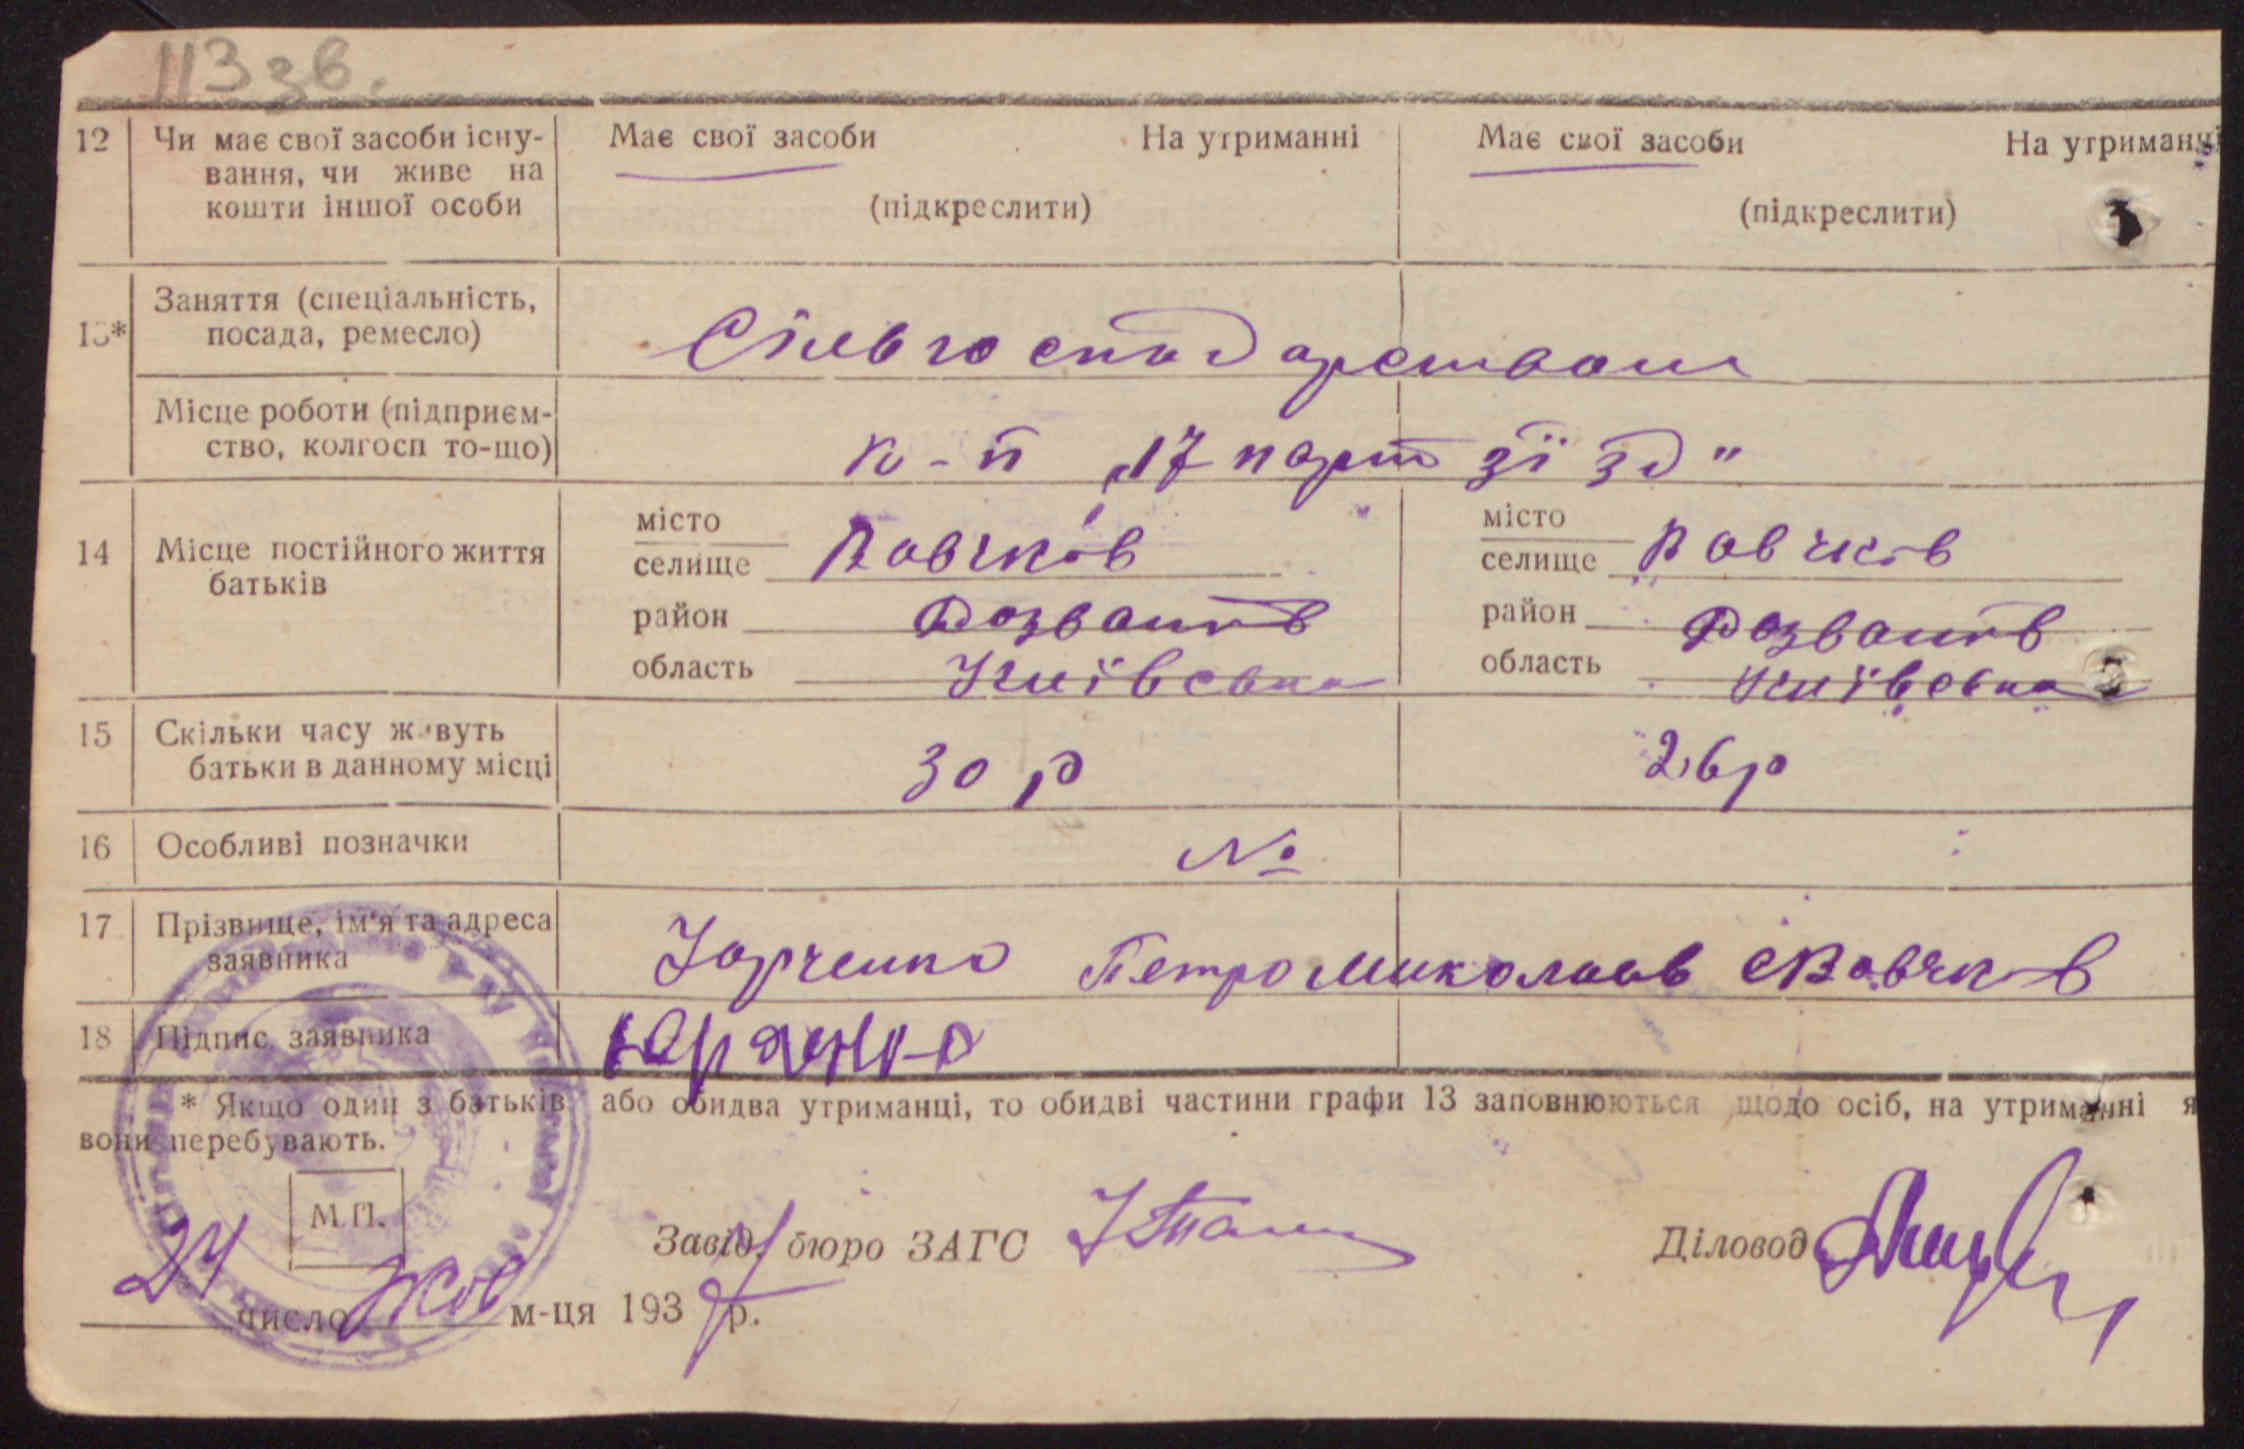 113 зв.
12 Чи має свої засоби існу- Має свої засоби На утриманні Має свої засоби На утриманні
вання, чи живе на
кошти іншої особи (підкреслити) (підкреслити)
Заняття (спеціальність,
13* посада, ремесло) Сільгосподарством
Місце роботи (підприєм-
ство, колгосп то-що) к-п „17 парт зїзд"
місто місто
14 Місце постійного життя селище Вовчков селище Вовчков
батьків
район район
область Київська область Київська
15 Скільки часу живуть
батьки в данному місці 30 р 26 р
16 Особливі позначки №
17 Прізвище, ім'я та адреса
заявника Юрченко Петро Миколаєв с Вовчков
18 Підпис заявника Юрченко
* Якщо один з батьків або обидва утриманці, то обидві частини графи 13 заповнюються щодо осіб, на утриманні я
вони перебувають.
М.П.
Завід. бюро ЗАГС Діловод
24 число жов м-ця 1937 р.